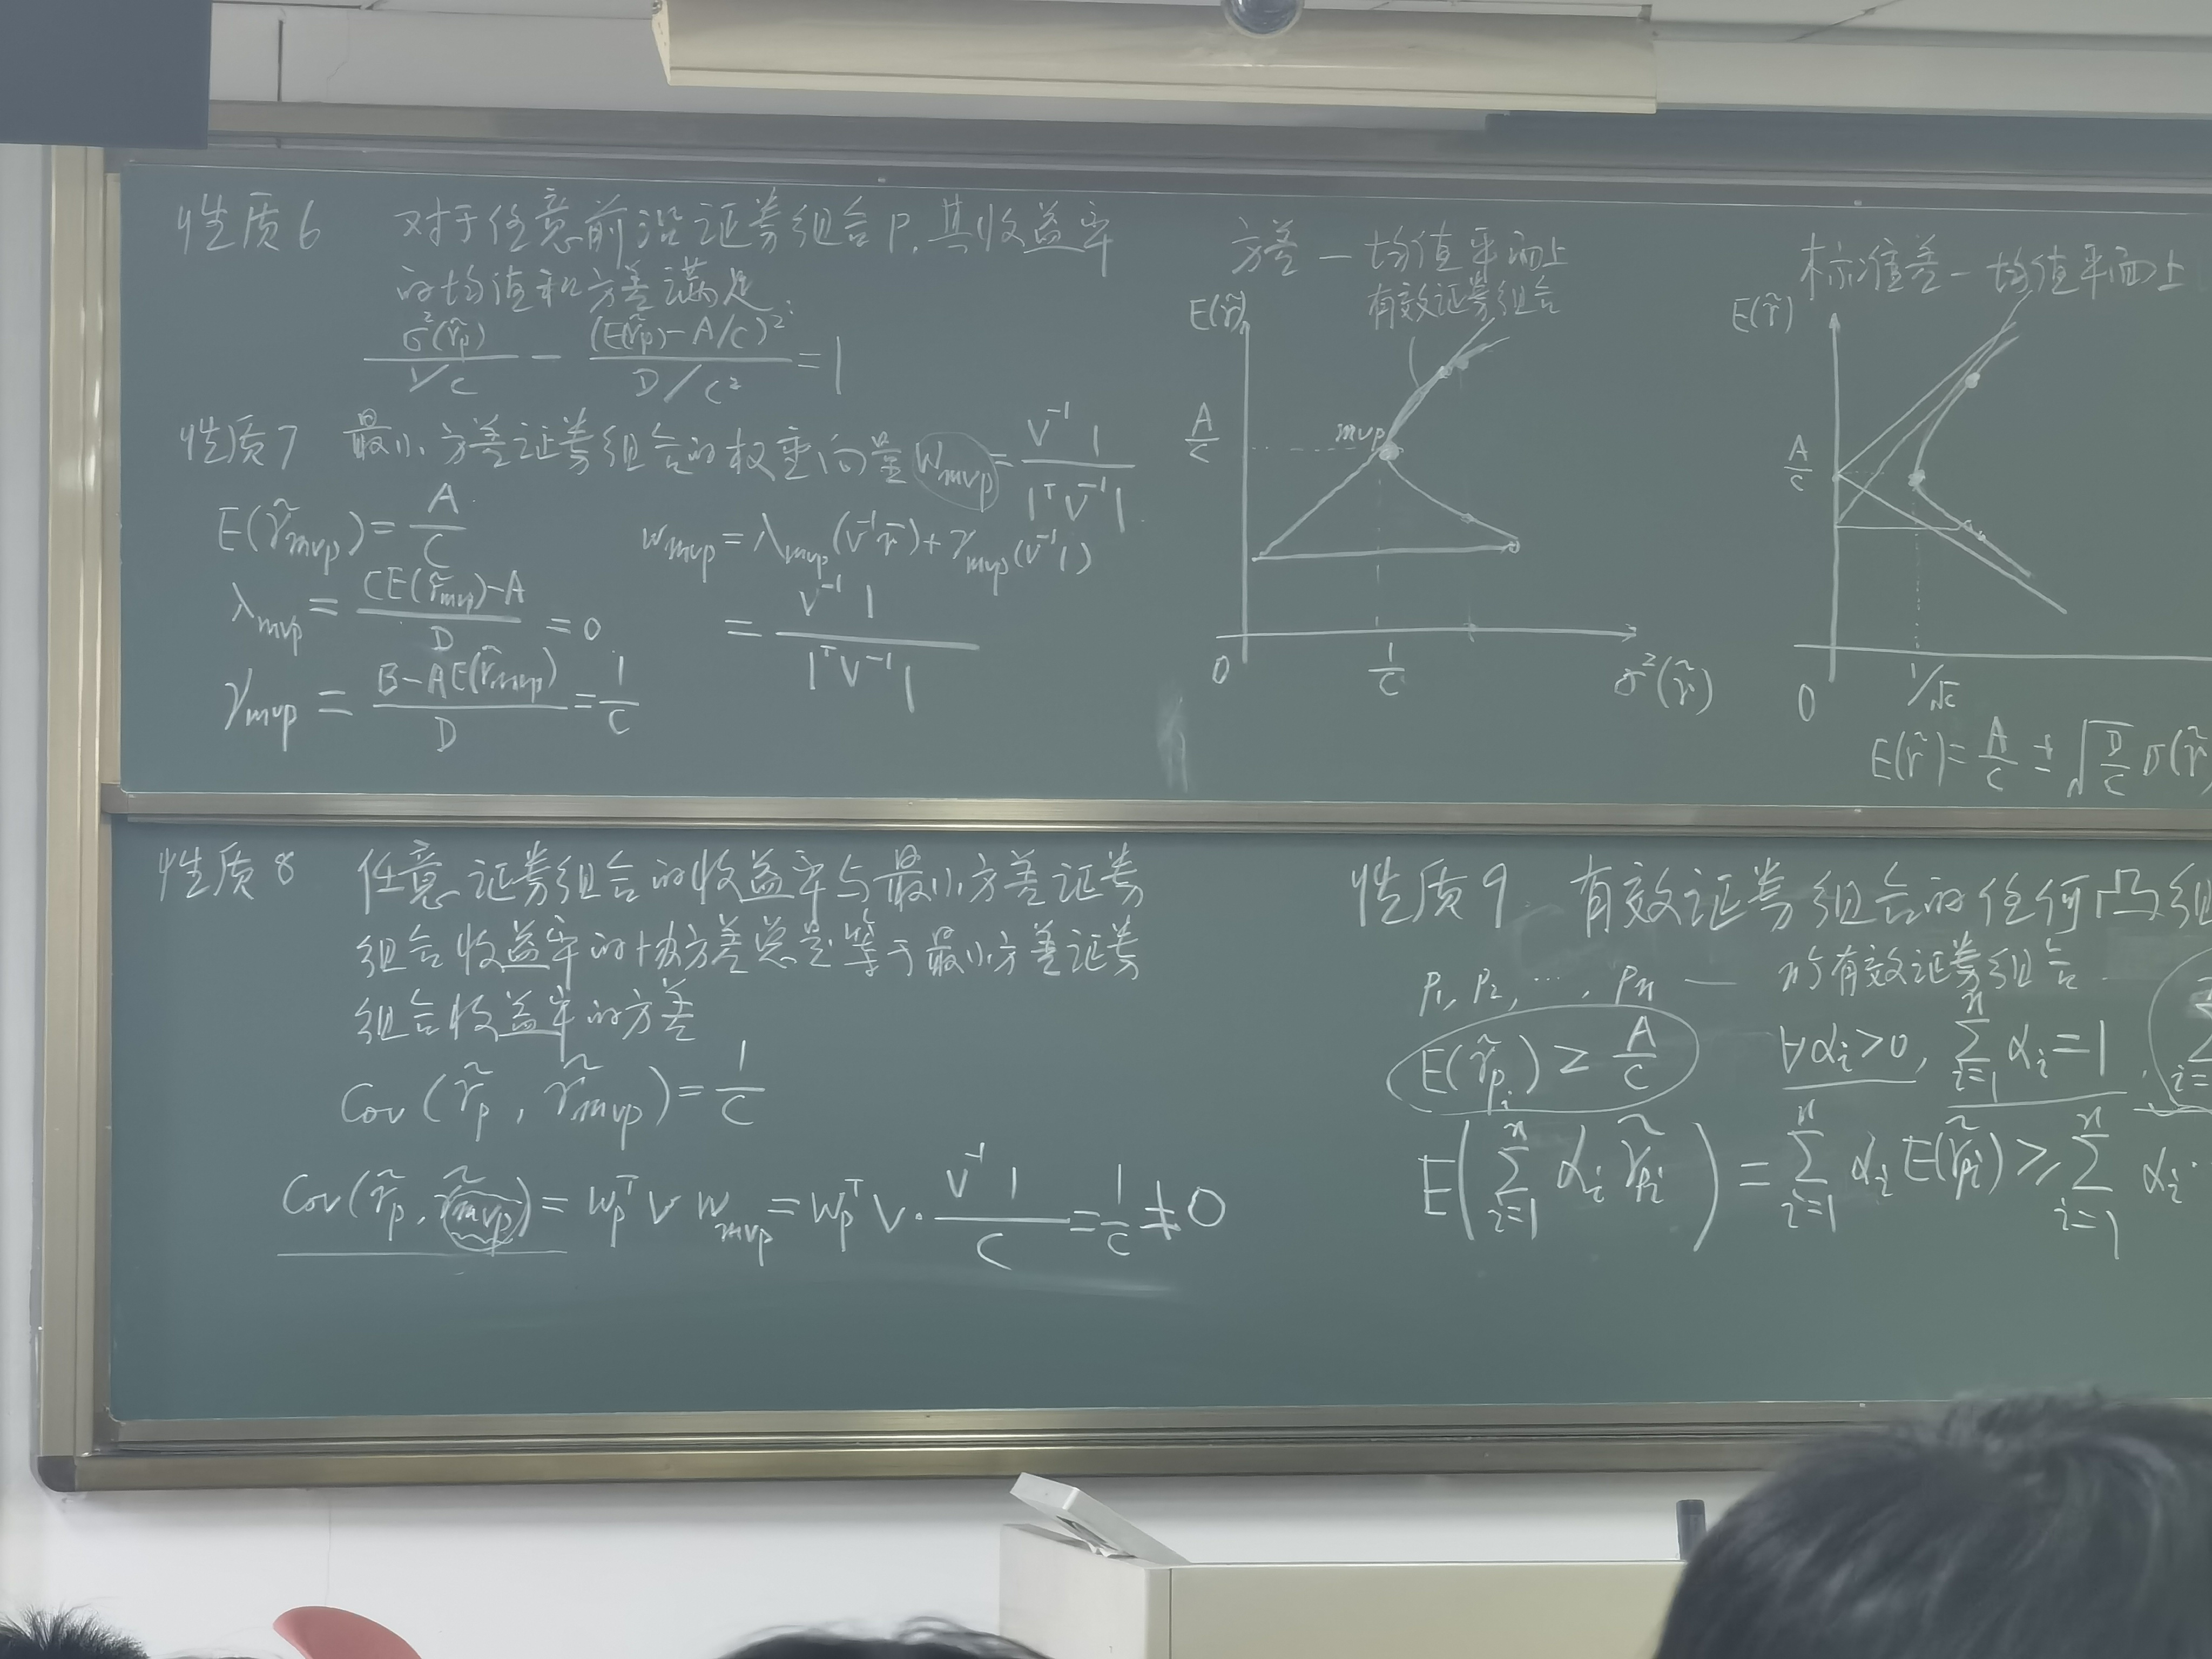 性质6 对于任意前沿证券组合P,其收益率
的均值和方差满足:
σ²(r̃p)/(1/C) − (E(r̃p)−A/C)²/(D/C²) = 1
性质7 最小方差证券组合的权重向量 Wmvp = V⁻¹1/(1ᵀV⁻¹1)
E(r̃mvp) = A/C
wmvp = λmvp(V⁻¹r̄)+γmvp(V⁻¹1)
λmvp = (CE(r̃mvp)−A)/D = 0
= V⁻¹1/(1ᵀV⁻¹1)
γmvp = (B−AE(r̃mvp))/D = 1/C
方差—均值平面上
有效证券组合
E(r̃)
A/C
mvp
0
1/C
σ²(r̃)
标准差—均值平面上
E(r̃)
A/C
0
1/√C
E(r̃) = A/C ± √(D/C) σ(r̃
性质8 任意证券组合的收益率与最小方差证券
组合收益率的协方差总是等于最小方差证券
组合收益率的方差
Cov(r̃p, r̃mvp) = 1/C
Cov(r̃p, r̃mvp) = wpᵀ V wmvp = wpᵀ V · V⁻¹1/C = 1/C ≠ 0
性质9 有效证券组合的任何凸组
P₁, P₂, …, Pn — n个有效证券组合
E(r̃pi) ≥ A/C ∀αi>0, ∑ⁿᵢ₌₁ αi = 1,
E(∑ⁿᵢ₌₁ αi r̃pi) = ∑ⁿᵢ₌₁ αi E(r̃pi) ≥ ∑ⁿᵢ₌₁ αi